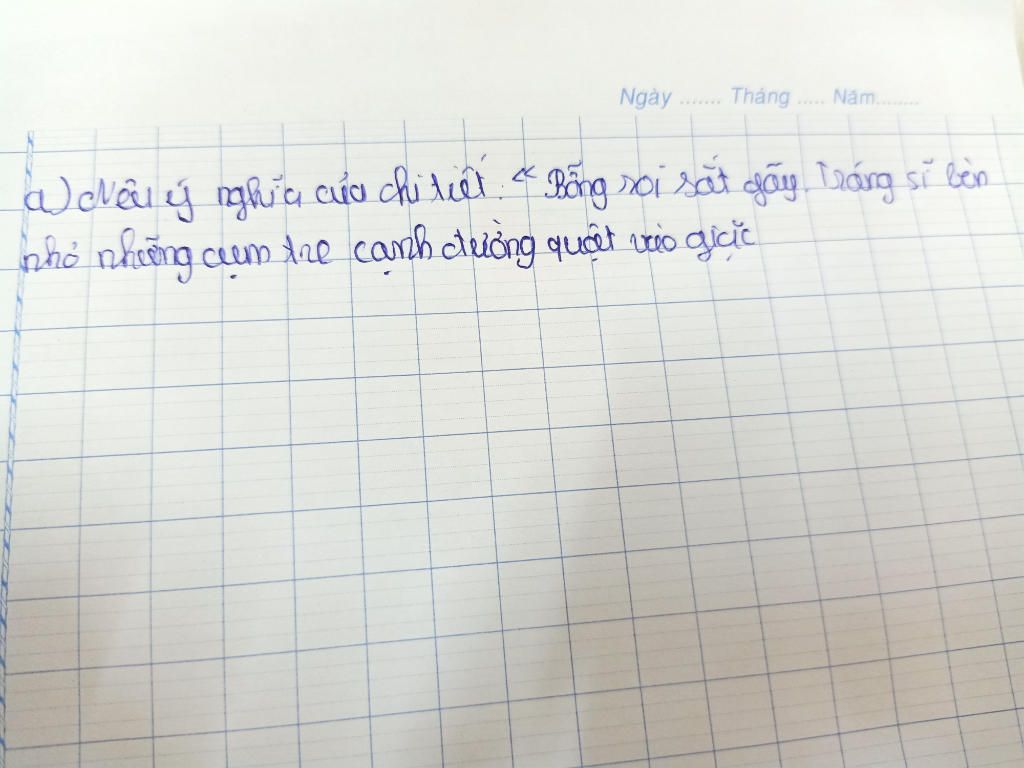 Ngày ....... Tháng ..... Năm........
a) Nêu ý nghĩa của chi tiết. “ Bỗng roi sắt gãy. Tráng sĩ bèn
nhổ những cụm tre cạnh đường quật vào giặc